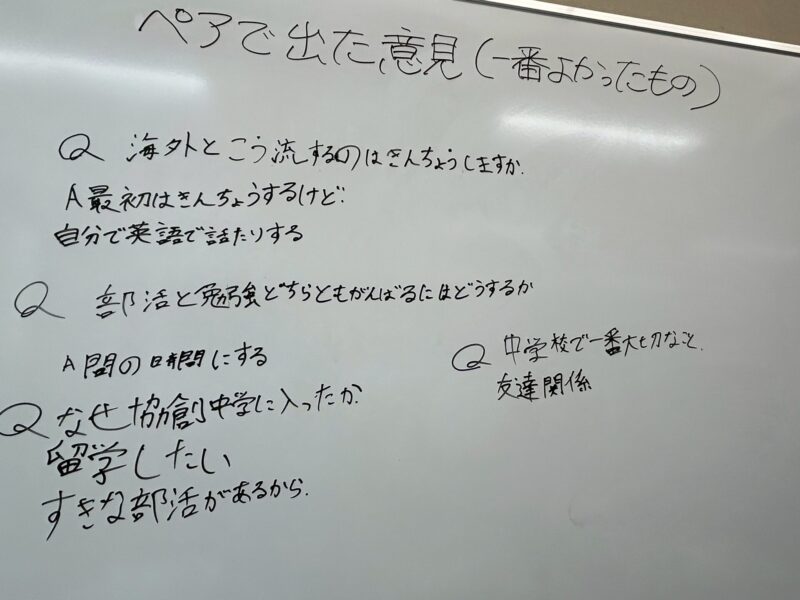 ペアで出た意見(一番よかったもの)
Q 海外とこう流するのはきんちょうしますか.
A最初はきんちょうするけど
自分で英語で話たりする
Q 部活と勉強どちらともがんばるにはどうするか
A 間の時間にする
Q なぜ協創中学に入ったか.
留学したい
すきな部活があるから.
Q 中学校で一番大切なこと.
友達関係